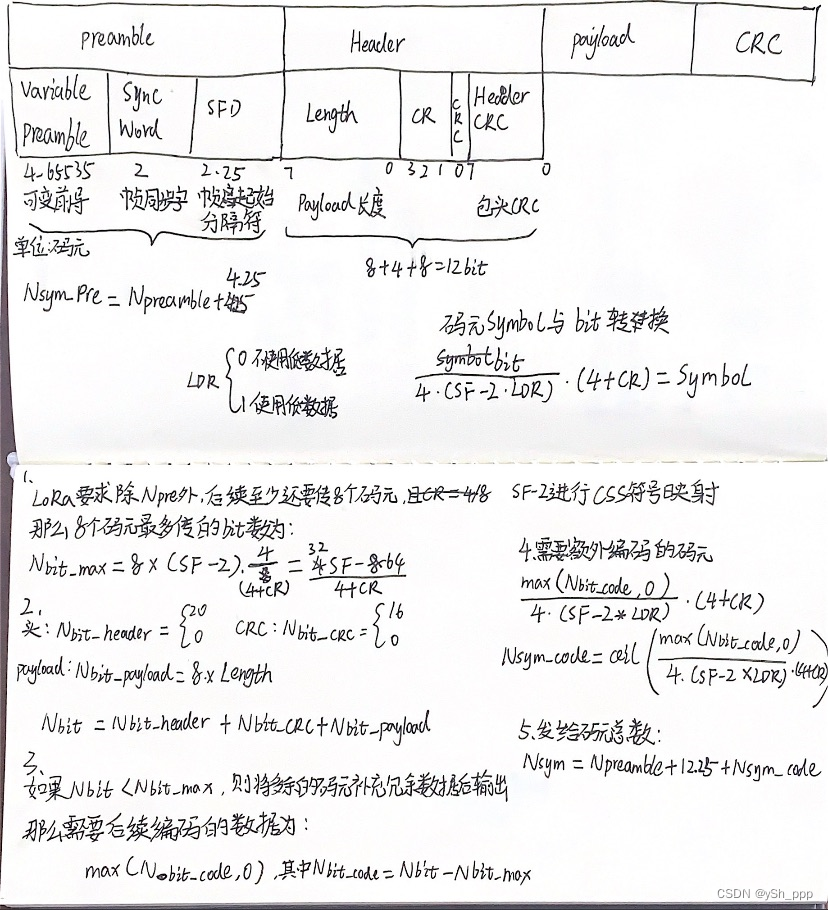 preamble Header payload CRC
Variable Preamble Sync Word SFD Length CR CRC Header CRC
4-65535 2 2.25 7 0 3 2 1 0 7 0
可变前导 帧同步字 帧起始分隔符 Payload长度 包头CRC
单位:码元
8+4+8=12bit
4.25
Nsym_Pre = Npreamble+
码元Symbol与bit转换
LDR { 0 不使用低数据
1 使用低数据
bit / 4·(SF-2·LDR) ·(4+CR) = Symbol
1.
LoRa要求除Npre外,后续至少还要传8个码元,且CR=4/8 SF-2进行CSS符号映射
那么8个码元最多传的bit数为:
Nbit_max = 8×(SF-2)· 4/(4+CR) = 32SF-64 / 4+CR
2.
头: Nbit_header = { 20 0 CRC: Nbit_CRC = { 16 0
payload: Nbit_payload = 8×Length
Nbit = Nbit_header + Nbit_CRC + Nbit_payload
3.
如果Nbit < Nbit_max, 则将多余的码元补充冗余数据后输出
那么需要后续编码的数据为:
max(Nbit_code,0), 其中Nbit_code = Nbit - Nbit_max
4.需要额外编码的码元
max(Nbit_code,0) / 4·(SF-2*LDR) ·(4+CR)
Nsym_code = ceil( max(Nbit_code,0) / 4·(SF-2×LDR) ·(4+CR) )
5.发给码元总数:
Nsym = Npreamble+12.25+Nsym_code
CSDN @ySh_ppp